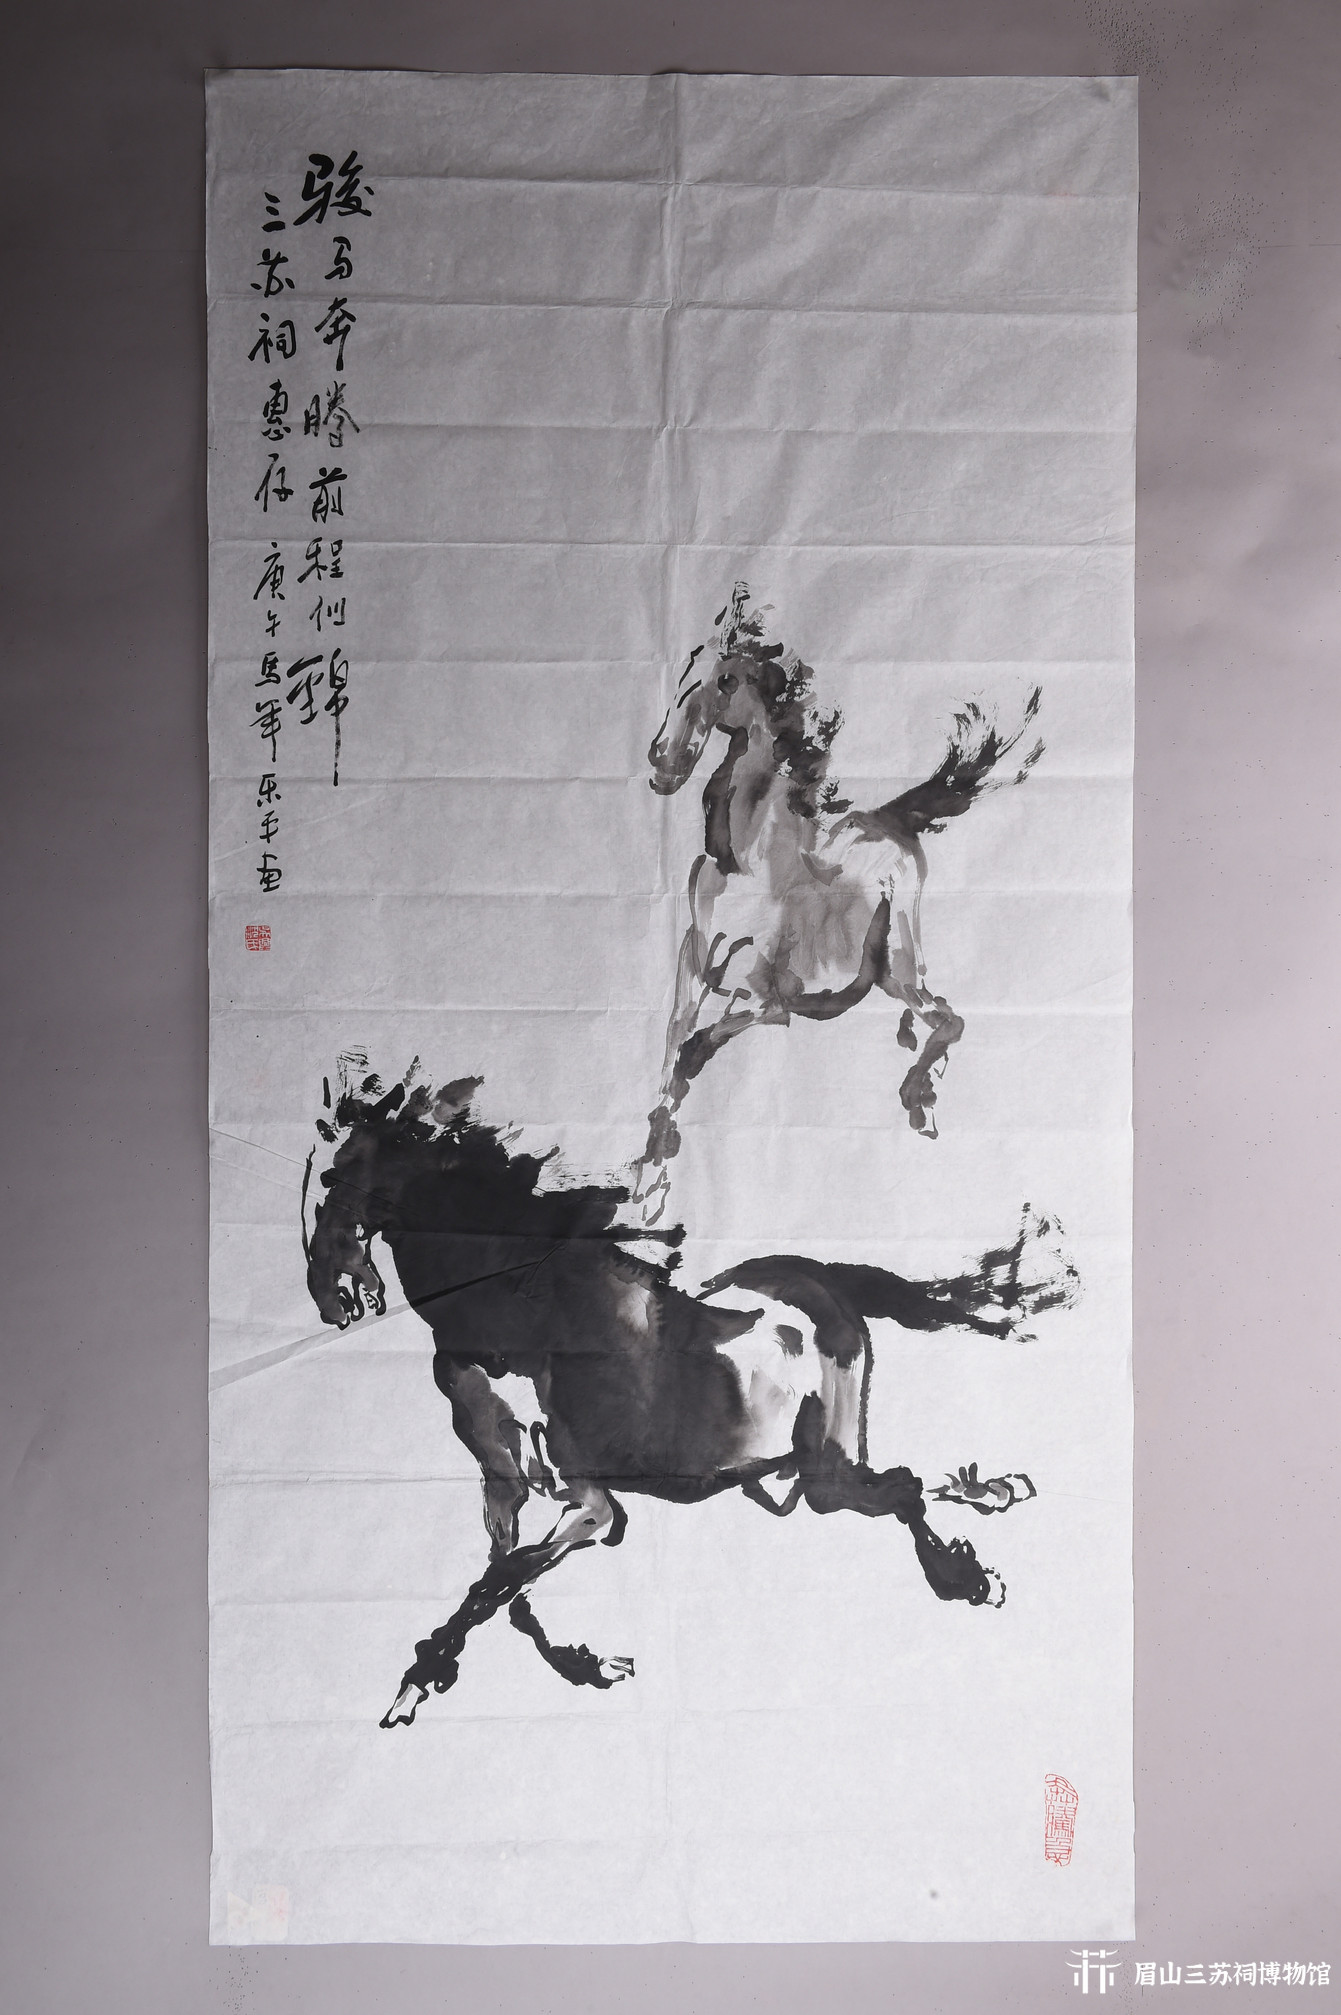 骏马奔腾前程似锦
三苏祠惠存 庚午馬年 乐平画
眉山三苏祠博物馆